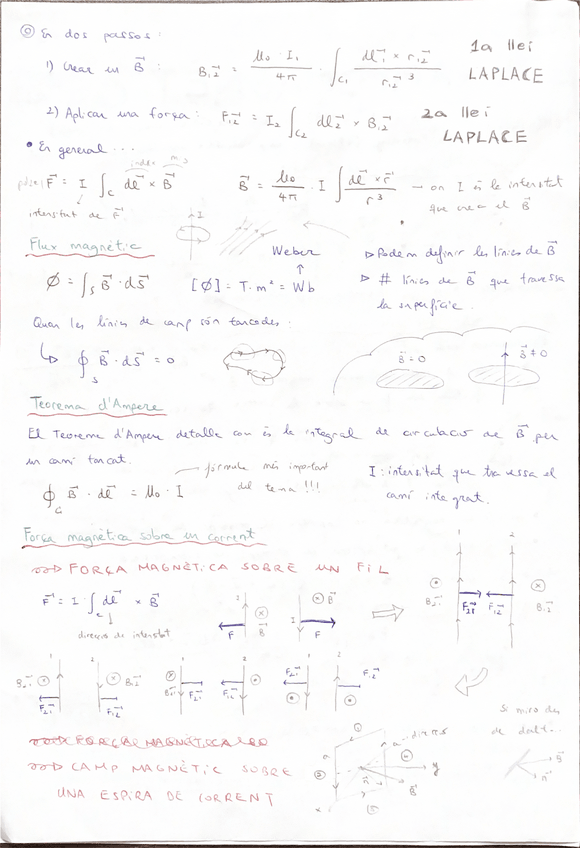 ⓪ En dos passos:
1) Crear un B⃗ : B₁₂⃗ = μ₀ · I₁ / 4π · ∫_C₁ dl₁⃗ × r₁₂⃗ / r₁₂⃗ ³ 1a llei LAPLACE
2) Aplicar una força: F₁₂⃗ = I₂ ∫_C₂ dl₂⃗ × B₁₂⃗ 2a llei LAPLACE
• En general...
F⃗ = I ∫_C dl⃗ × B⃗ B⃗ = μ₀ / 4π · I ∫ dl⃗ × r⃗ / r³ → on I és la intensitat
que crea el B⃗
intensitat de F⃗.
I
Flux magnètic
Weber
▷ Podem definir les línies de B⃗
Ø = ∫_S B⃗ · dS⃗ [Ø] = T · m² = Wb
▷ # línies de B⃗ que travessa
la superfície.
Quan les línies de camp són tancades:
∮_S B⃗ · dS⃗ = 0
B⃗ = 0 B⃗ ≠ 0
Teorema d'Ampere
El Teorema d'Ampere detalla com és la integral de circulació de B⃗ per
un camí tancat.
fórmula més important
del tema!!!
∮_C B⃗ · dl⃗ = μ₀ · I
I: intensitat que travessa el
camí integrat.
Força magnètica sobre un corrent
FORÇA MAGNÈTICA SOBRE UN FIL
F⃗ = I ∫_C dl⃗ × B⃗
direcció de intensitat
2 B⃗ F
1 B⃗ F
1 2
B₂₁⃗ F₂₁⃗ F₁₂⃗ B₁₂⃗
1 2
B₂₁⃗ F₂₁⃗ B₁₂⃗ F₁₂⃗
1 2
B₂₁⃗ F₂₁⃗ F₁₂⃗
1 2
F₂₁⃗ F₁₂⃗
Si mires des
de dalt...
FORÇA MAGNÈTICA
CAMP MAGNÈTIC SOBRE
UNA ESPIRA DE CORRENT
y
n⃗ B⃗
x
B⃗
n⃗